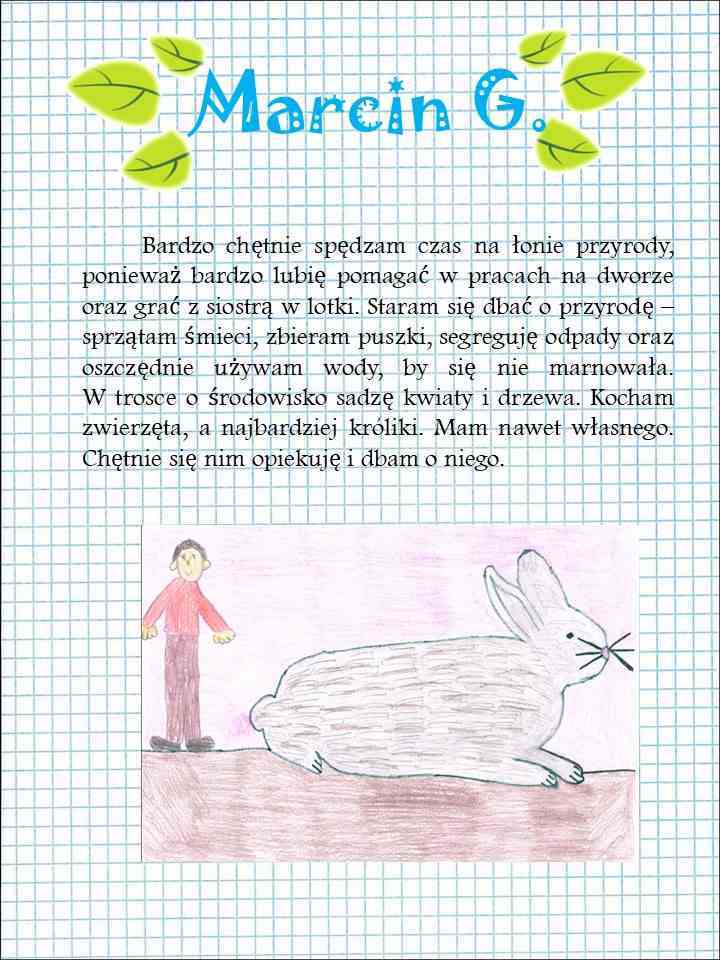 Marcin G.
Bardzo chętnie spędzam czas na łonie przyrody,
ponieważ bardzo lubię pomagać w pracach na dworze
oraz grać z siostrą w lotki. Staram się dbać o przyrodę –
sprzątam śmieci, zbieram puszki, segreguję odpady oraz
oszczędnie używam wody, by się nie marnowała.
W trosce o środowisko sadzę kwiaty i drzewa. Kocham
zwierzęta, a najbardziej króliki. Mam nawet własnego.
Chętnie się nim opiekuję i dbam o niego.